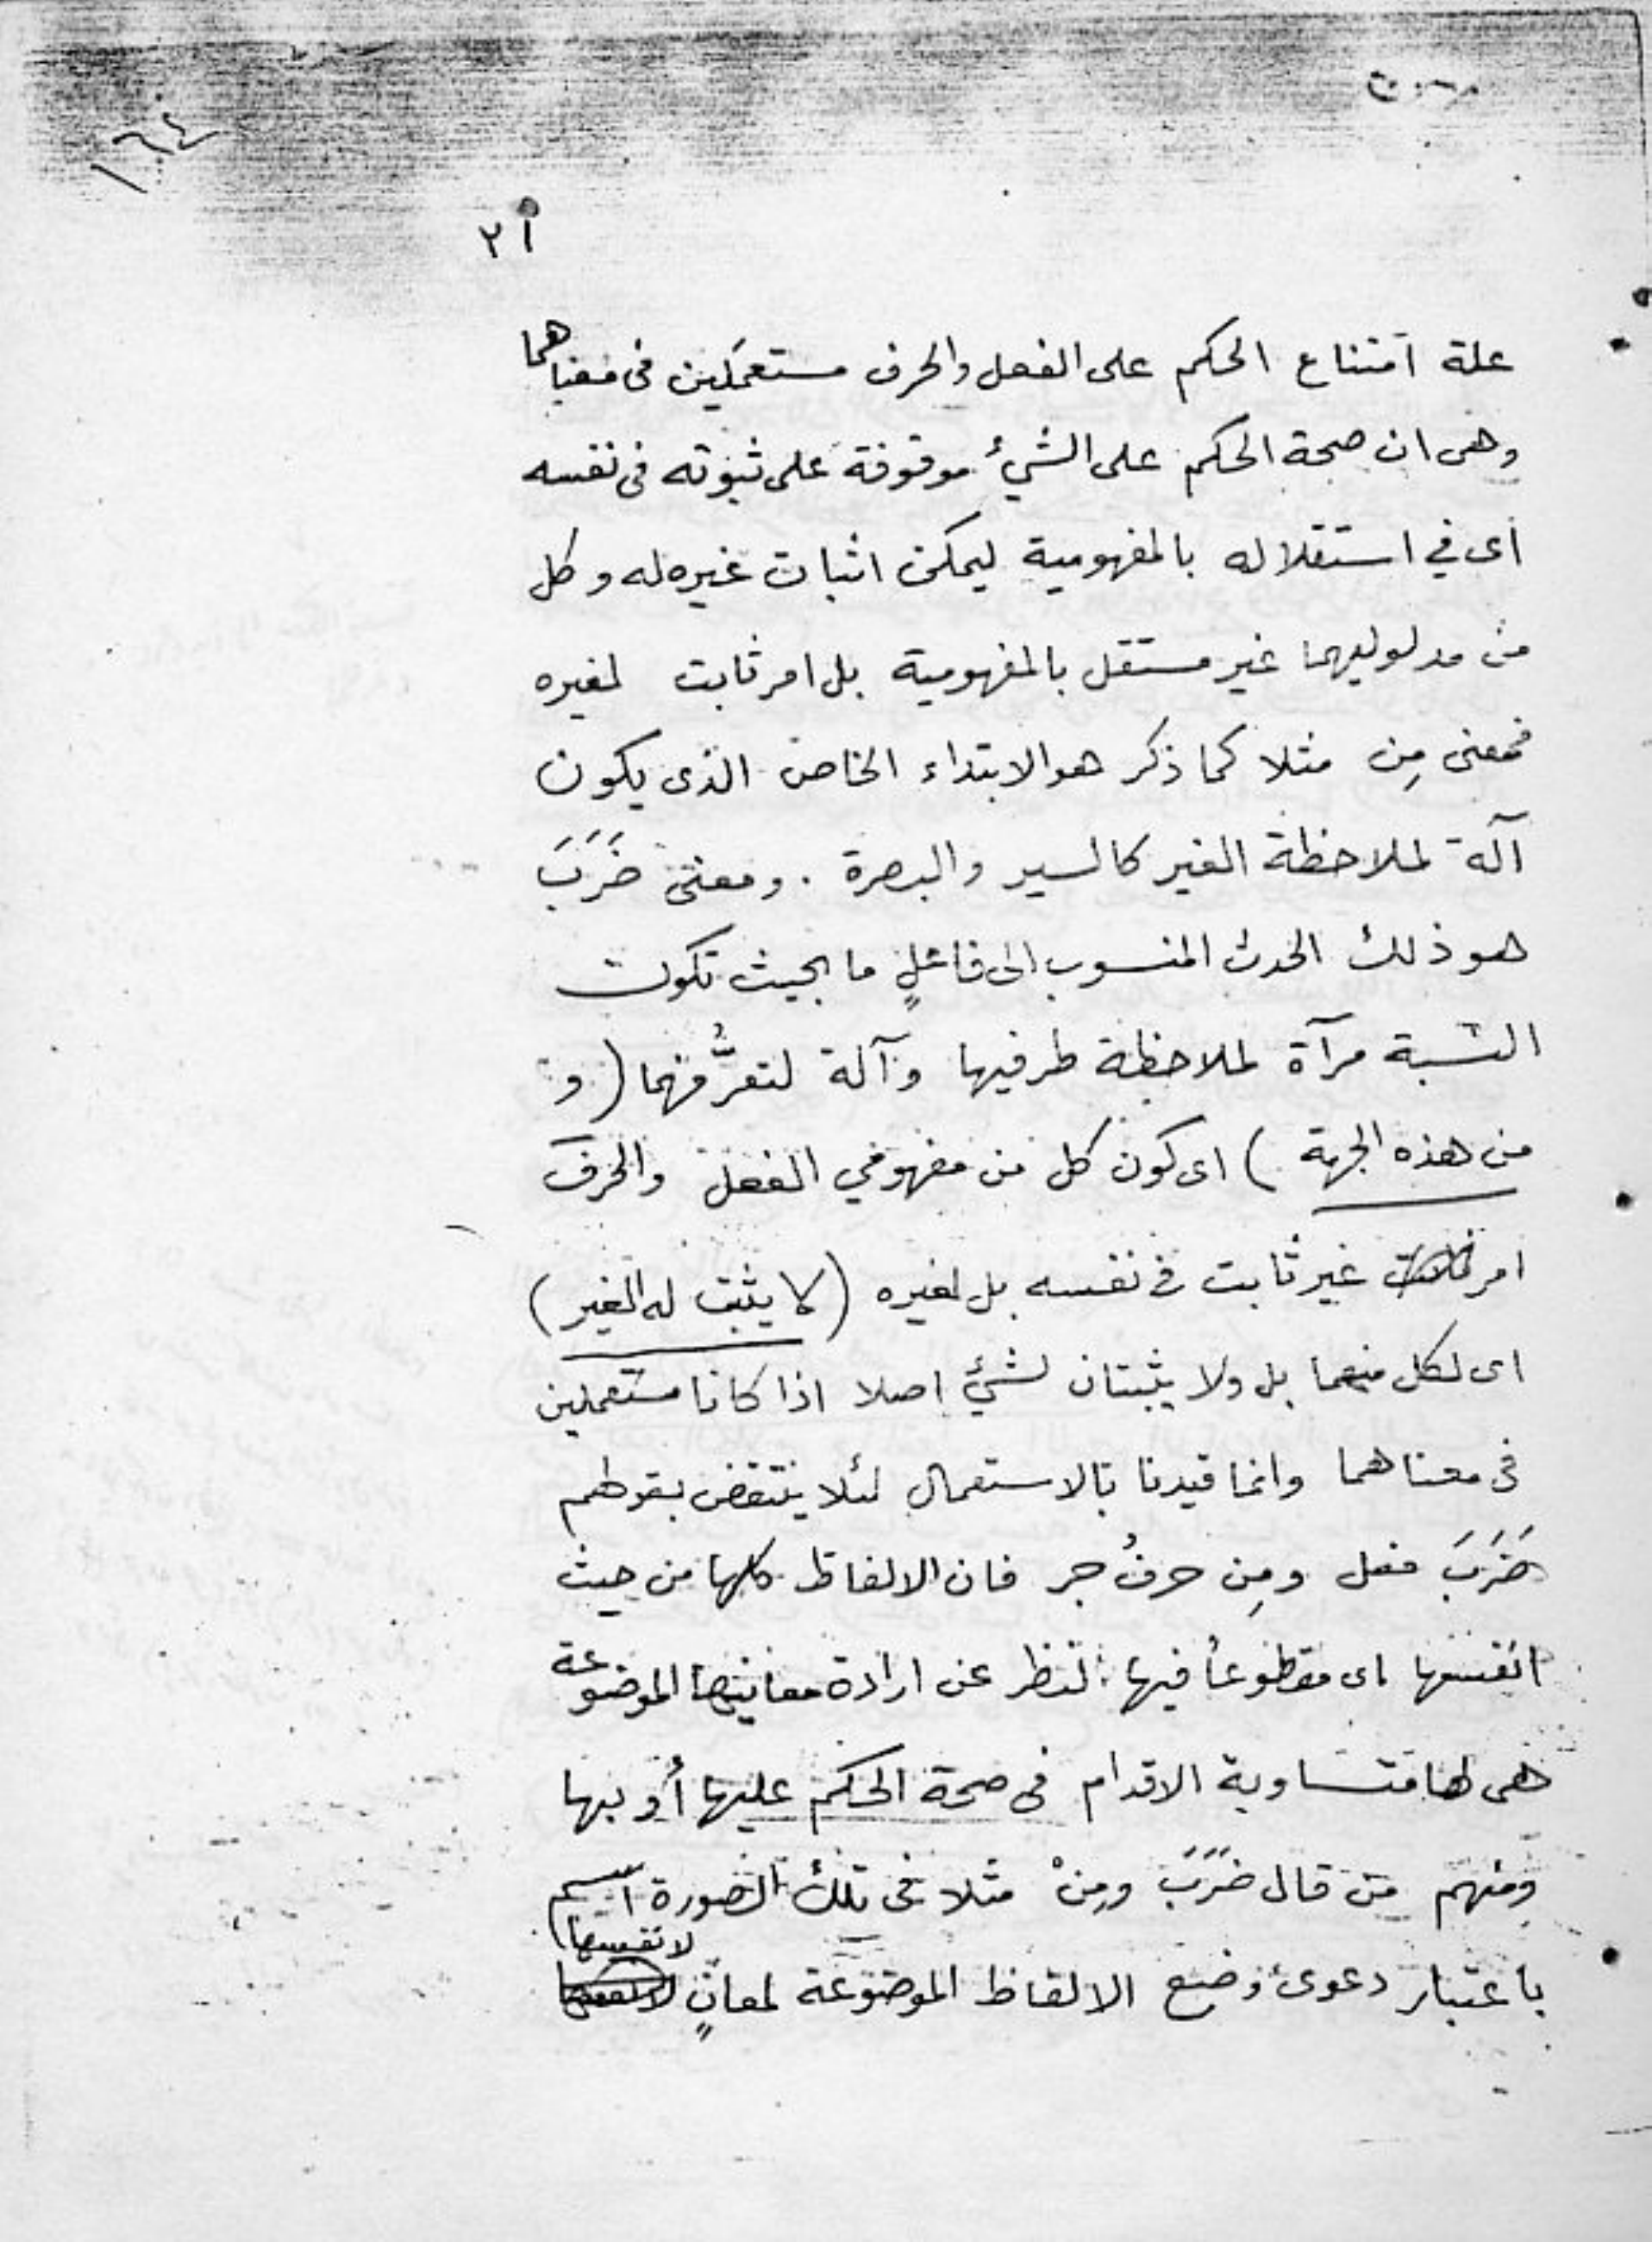 ١٦٤
٢١
علة امتناع الحكم على الفعل والحرف مستعمَلين فى معناهما
وهى ان صحة الحكم على الشيء موقوفة على ثبوته فى نفسه
أى في استقلاله بالمفهومية ليمكن اثبات غيره له وكل
من مدلوليهما غير مستقل بالمفهومية بل امر ثابت لغيره
فمعنى مِن مثلا كما ذكر هو الابتداء الخاص الذى يكون
آلة لملاحظة الغير كالسير والبصرة . ومعنى ضَرَبَ
هو ذلك الحدث المنسوب الى فاعلٍ ما بحيث تكون
النسبة مرآة لملاحظة طرفيها وآلة لتعرُّفهما ( و
من هذه الجهة ) اى كون كل من مفهومي الفعل والحرف
امر غير ثابت فى نفسه بل لغيره ( لا يثبت له الغير )
اى لكل منهما بل ولا يثبتان لشيء اصلا اذا كانا مستعملين
فى معناهما وانما قيدنا بالاستعمال لئلا ينتقض بقولهم
ضَرَبَ فعل ومِن حرفُ جر فان الالفاظ كلها من حيث
انفسها اى مقطوعاً فيها النظر عن ارادة معانيها الموضوعة
هى لها متساوية الاقدام فى صحة الحكم عليها أو بها
ومنهم من قال ضَرَبَ ومِنْ مثلا فى تلك الصورة اسم
باعتبار دعوى وضع الالفاظ الموضوعة لمعانٍ لانفسها